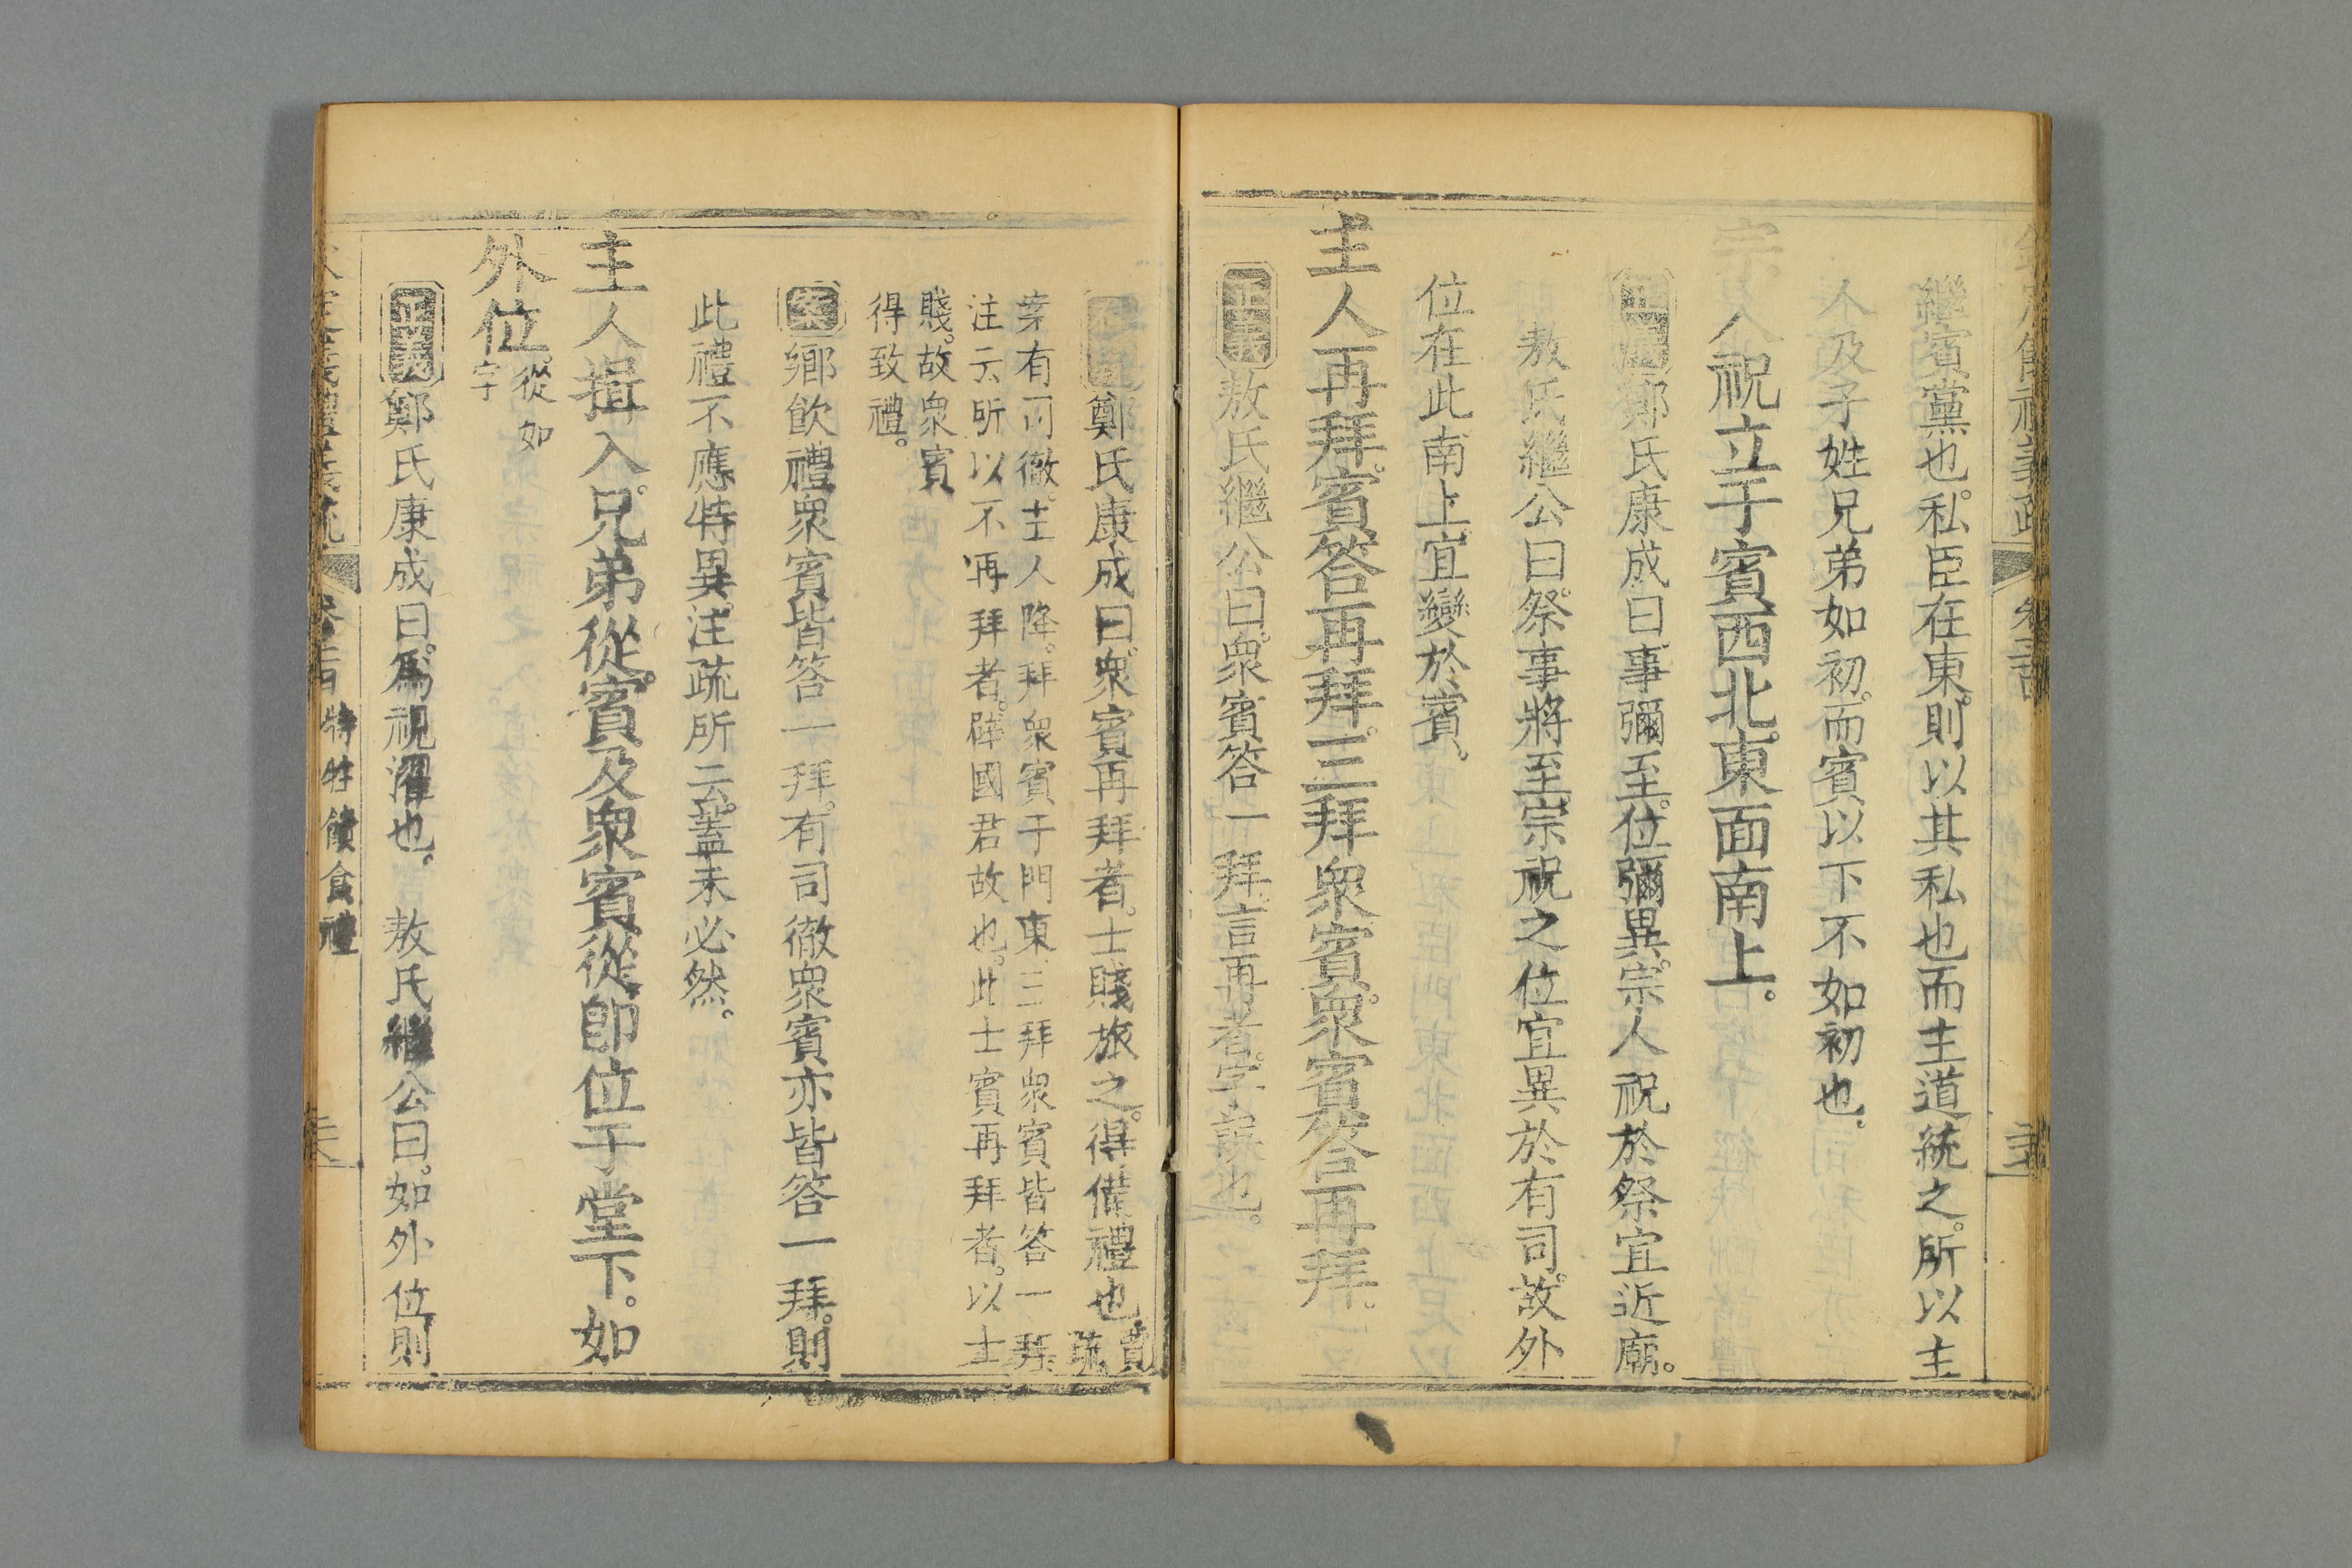 繼賓黨也。私臣在東。則以其私也而主道統之。所以主
人不及子姓兄弟如初。而賓以下不如初也。
宗人祝立于賓西北。東面南上。
正義鄭氏康成曰。事彌至。位彌異。宗人祝於祭宜近廟。
敖氏繼公曰。祭事將至。宗祝之位宜異於有司。故外
位在此南上。宜變於賓。
主人再拜。賓答再拜。三拜衆賓。衆賓答再拜。
正義敖氏繼公曰。衆賓答一拜。言再者。字誤也。
鄭氏康成曰。衆賓再拜者。士賤旅之。得備禮也。賈疏
案有司徹。主人降。拜衆賓于門東三拜衆賓皆答一拜
注云所以不再拜者。辟國君故也。此士賓再拜者。以士
賤。故衆賓
得致禮。
案鄉飲禮衆賓皆答一拜。有司徹衆賓亦皆答一拜。則
此禮不應特異。注疏所云。蓋未必然。
主人揖入。兄弟從。賓及衆賓從。卽位于堂下。如
外位。從如
字
正義鄭氏康成曰。爲視濯也。 敖氏繼公曰。如外位。則
特牲饋食禮